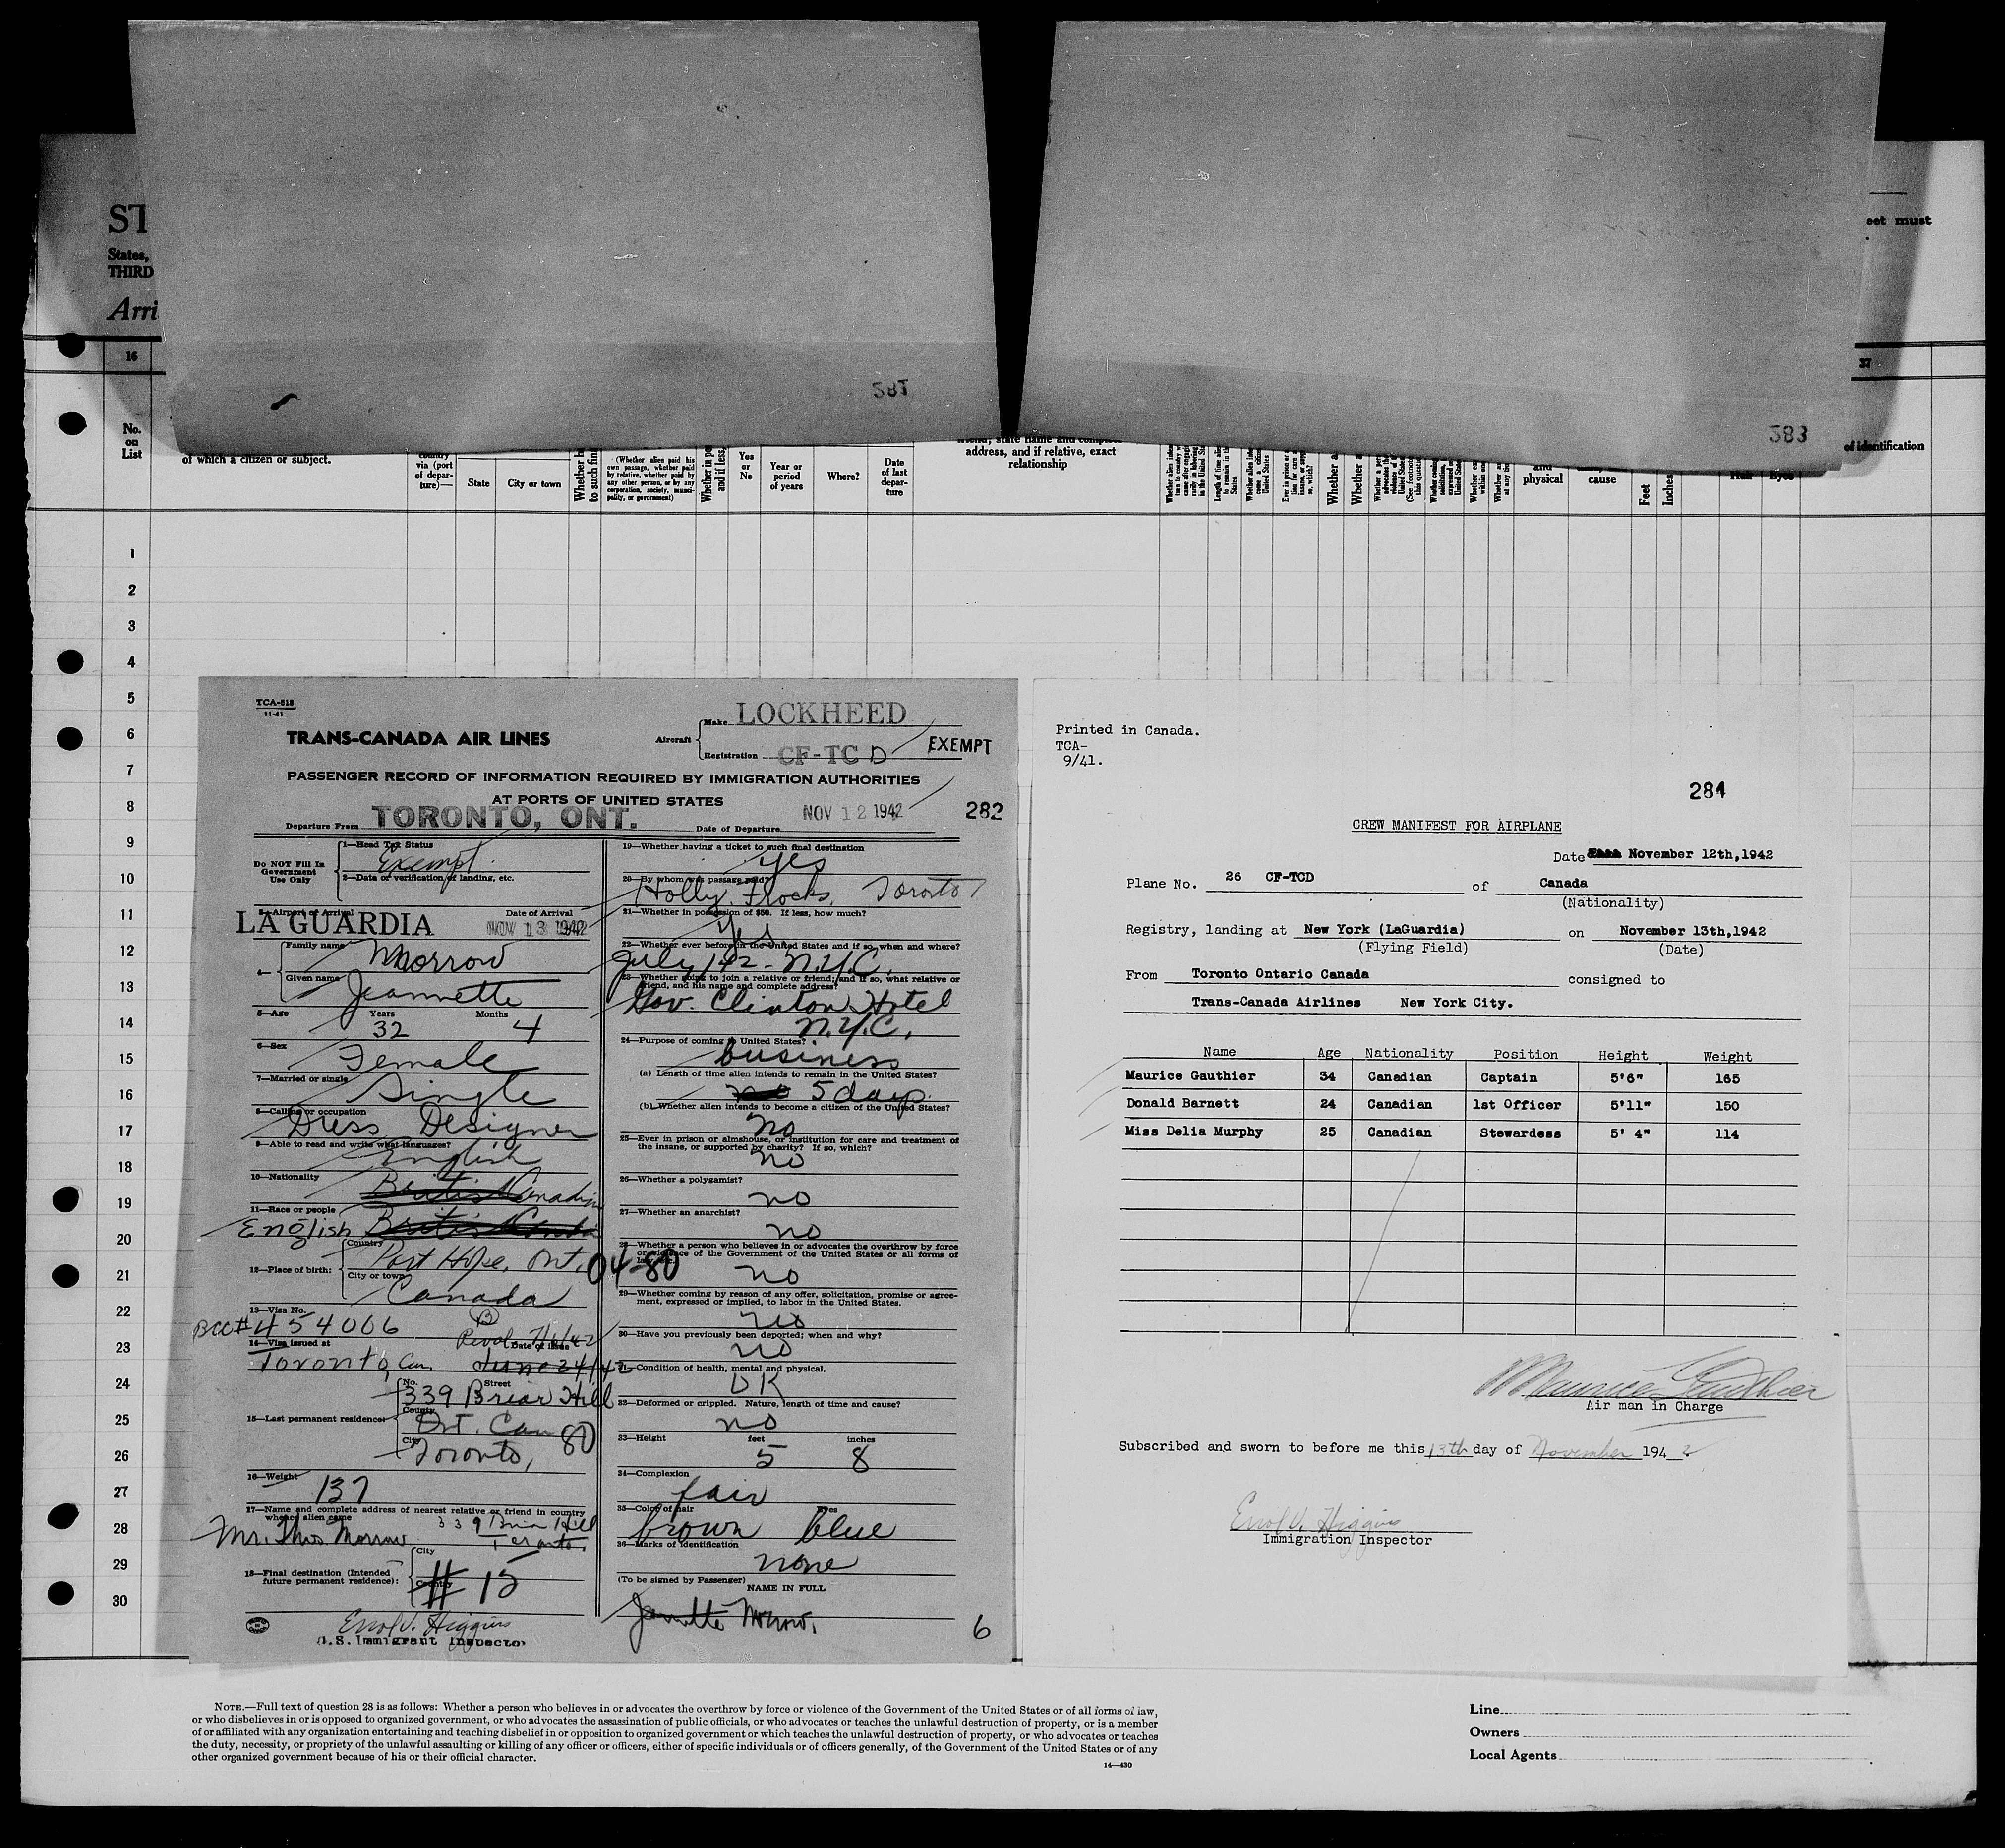 ST
States,
THIRD
Arri
eet must
16
37
381
383
No.
on
List
of which a citizen or subject.
country
via (port
of depar-
ture)—
State
City or town
(Whether alien paid his
own passage, whether paid
by relative, whether paid by
any other person, or by any
corporation, society, munici-
pality, or government)
Yes
or
No
Year or
period
of years
Where?
Date
of last
depar-
ture
friend; state name and complete
address, and if relative, exact
relationship
and
physical
cause
Feet
Inches
Hair
Eyes
of identification
1
2
3
4
5
6
7
8
9
10
11
12
13
14
15
16
17
18
19
20
21
22
23
24
25
26
27
28
29
30
TCA-518
11-41
TRANS-CANADA AIR LINES
Aircraft
Make LOCKHEED
Registration CF-TC D
EXEMPT
PASSENGER RECORD OF INFORMATION REQUIRED BY IMMIGRATION AUTHORITIES
AT PORTS OF UNITED STATES
Departure From TORONTO, ONT.
Date of Departure NOV 12 1942
282
Do NOT Fill In
Government
Use Only
1—Head Tax Status
Exempt
2—Data or verification of landing, etc.
3—Airport of Arrival
Date of Arrival
LA GUARDIA NOV 13 1942
4—
Family name Morrow
Given name Jeannette
5—Age Years 32 Months 4
6—Sex Female
7—Married or single Single
8—Calling or occupation
Dress Designer
9—Able to read and write what languages?
English
10—Nationality
British Canadian
11—Race or people
English
12—Place of birth:
Country
Port Hope, Ont. 04-80
City or town
Canada
13—Visa No.
BCC# 454006
14—Visa issued at
Date of issue
Toronto, Can. June 24/42
15—Last permanent residence:
No. Street
339 Briar Hill
County
Ont. Can 80
City
Toronto,
16—Weight
137
17—Name and complete address of nearest relative or friend in country
whence alien came
Mr. Thos Morrow 339 Briar Hill
Toronto.
18—Final destination (Intended
future permanent residence):
City
Country
# 15
Errol V. Higgins
U.S. Immigrant Inspector
19—Whether having a ticket to such final destination
Yes
20—By whom was passage paid?
Holly Frocks, Toronto
21—Whether in possession of $50. If less, how much?
Yes
22—Whether ever before in the United States and if so, when and where?
July /42 - N.Y.C.
23—Whether going to join a relative or friend; and if so, what relative or
friend, and his name and complete address?
Gov. Clinton Hotel
N.Y.C.
24—Purpose of coming to United States?
business
(a) Length of time alien intends to remain in the United States?
5 days
(b) Whether alien intends to become a citizen of the United States?
no
25—Ever in prison or almshouse, or institution for care and treatment of
the insane, or supported by charity? If so, which?
no
26—Whether a polygamist?
no
27—Whether an anarchist?
no
28—Whether a person who believes in or advocates the overthrow by force
or violence of the Government of the United States or all forms of
no
29—Whether coming by reason of any offer, solicitation, promise or agree-
ment, expressed or implied, to labor in the United States.
no
30—Have you previously been deported; when and why?
no
31—Condition of health, mental and physical.
OK
32—Deformed or crippled. Nature, length of time and cause?
no
33—Height feet inches
5 8
34—Complexion
fair
35—Color of hair Eyes
brown blue
36—Marks of Identification
none
(To be signed by Passenger)
NAME IN FULL
Jeannette Morrow.
6
Printed in Canada.
TCA-
9/41.
284
CREW MANIFEST FOR AIRPLANE
Date November 12th,1942
Plane No. 26 CF-TCD of Canada
(Nationality)
Registry, landing at New York (LaGuardia) on November 13th,1942
(Flying Field) (Date)
From Toronto Ontario Canada consigned to
Trans-Canada Airlines New York City.
Name Age Nationality Position Height Weight
Maurice Gauthier 34 Canadian Captain 5'6" 165
Donald Barnett 24 Canadian 1st Officer 5'11" 150
Miss Delia Murphy 25 Canadian Stewardess 5' 4" 114
Maurice Gauthier
Air man in Charge
Subscribed and sworn to before me this 13th day of November 1942
Errol V. Higgins
Immigration Inspector
NOTE.—Full text of question 28 is as follows: Whether a person who believes in or advocates the overthrow by force or violence of the Government of the United States or of all forms of law,
or who disbelieves in or is opposed to organized government, or who advocates the assassination of public officials, or who advocates or teaches the unlawful destruction of property, or is a member
of or affiliated with any organization entertaining and teaching disbelief in or opposition to organized government or which teaches the unlawful destruction of property, or who advocates or teaches
the duty, necessity, or propriety of the unlawful assaulting or killing of any officer or officers, either of specific individuals or of officers generally, of the Government of the United States or of any
other organized government because of his or their official character.
14—430
Line
Owners
Local Agents